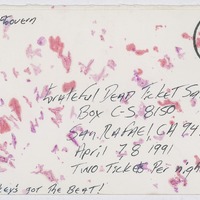 Grateful Dead Ticket Sa
Box C-S 8150
San Rafael, CA 94
April 7 8 1991
Two Tickets Per night
key's got the Beat!